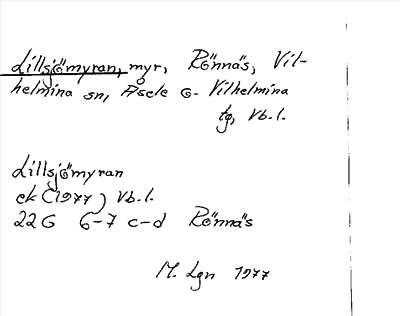 Lillsjömyran, myr, Rönnäs, Vil-
helmina sn, Åsele o. Vilhelmina
tg, Vb.l.
Lillsjömyran
ek (1977) Vb.l.
22G 6-7 c-d Rönnäs
M. Lgn 1977